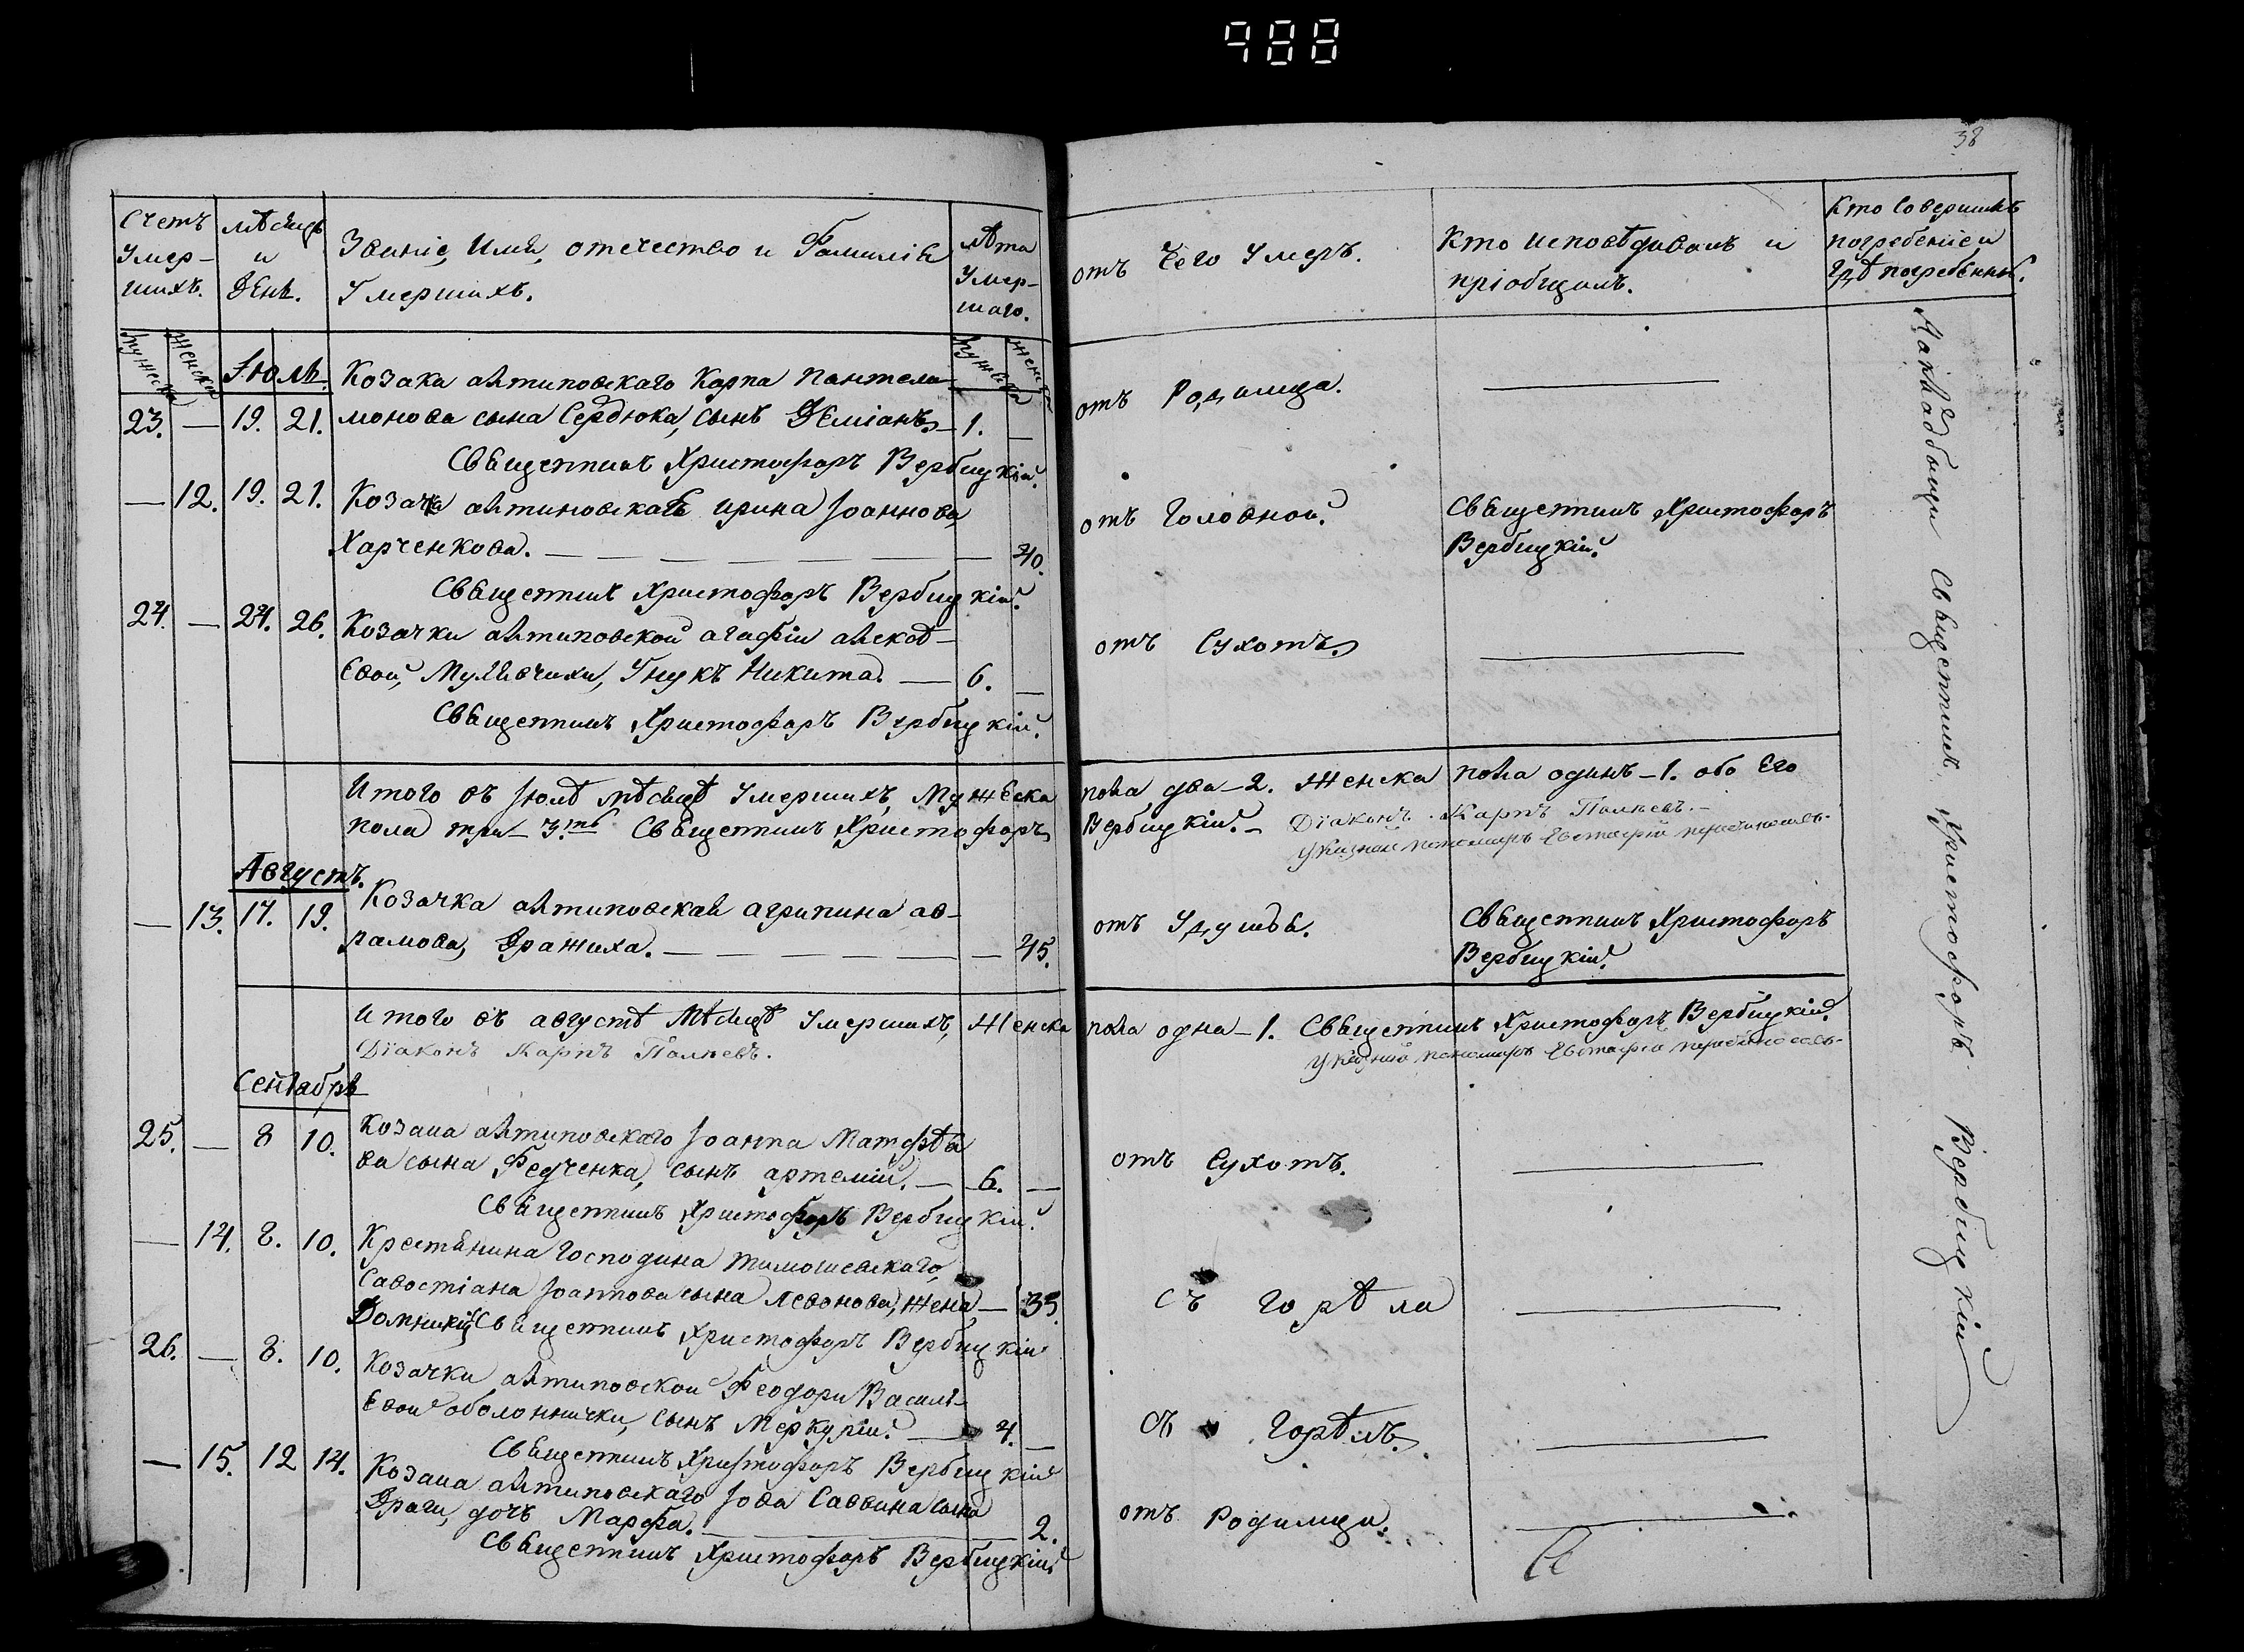 988
38
Счетъ Умер-шихъ.
мѣсяцъ и день.
Званіе, Имя, отечество и Фамилія
Умершихъ.
лѣта Умер-шаго.
мужеска
женска
Іюль.
мужеска
женска
Козака алтиповскаго Карпа Пантела-
23. — 19. 21. монова сына Сердюка, сынъ Деміанъ — 1. —
Священникъ Христофоръ Вербицкій.
— 12. 19. 21. Козачка алтиповская ирина Іоаннова
Харченкова. — 40.
Священникъ Христофоръ Вербицкій.
24. — 24. 26. Козачки алтиповской агафіи алексѣ-
евой, Унукъ Никита. — 6. —
Священникъ Христофоръ Вербицкій.
Итого въ Іюлѣ мѣсяцѣ Умершихъ, Мужеска
пола три — 3.
Священникъ Христофоръ
Августъ.
— 13. 17. 19. Козачка алтиповская агрипина ав-
рамова, Дражиха. — 45.
Итого въ августѣ мѣсяцѣ Умершихъ, Женска
Діаконъ Карпъ
Сентябрь
25. — 8 10. Козака алтиповскаго Іоанна Матфѣе
ва сына Федченка, сынъ артемій. — 6. —
Священникъ Христофоръ Вербицкій.
— 14. 8. 10. Крестянина Господина Тимошевскаго,
Савостіана Іоаннова сына Левонова, жена — 35.
Домникія Священникъ Христофоръ Вербицкій
26. — 8. 10. Козачки алтиповской Феодоры Василь-
евой оболоннички, сынъ Меркурій. — 4. —
Священникъ Христофоръ Вербицкій
— 15. 12 14. Козака алтиповскаго Іова Саввина сына
Драги, дочь Марфа. — 2.
Священникъ Христофоръ Вербицкій
отъ чего Умеръ.
Кто исповѣдывалъ и
пріобщалъ.
Кто Совершилъ
погребеніе и
гдѣ погребены.
отъ Родимца. —
отъ Головной.
Священникъ Христофоръ
Вербицкій.
отъ Сухотъ. —
пола два — 2. Женска пола одинъ — 1. обо его
Вербицкій. — Діаконъ Карпъ
отъ Удушья.
Священникъ Христофоръ
Вербицкій.
пола одна — 1. Священникъ Христофоръ Вербицкій.
отъ Сухотъ. —
съ горѣла —
съ горѣлъ. —
отъ Родимца. —
На кладбищи Священникъ Христофоръ Вербицкій